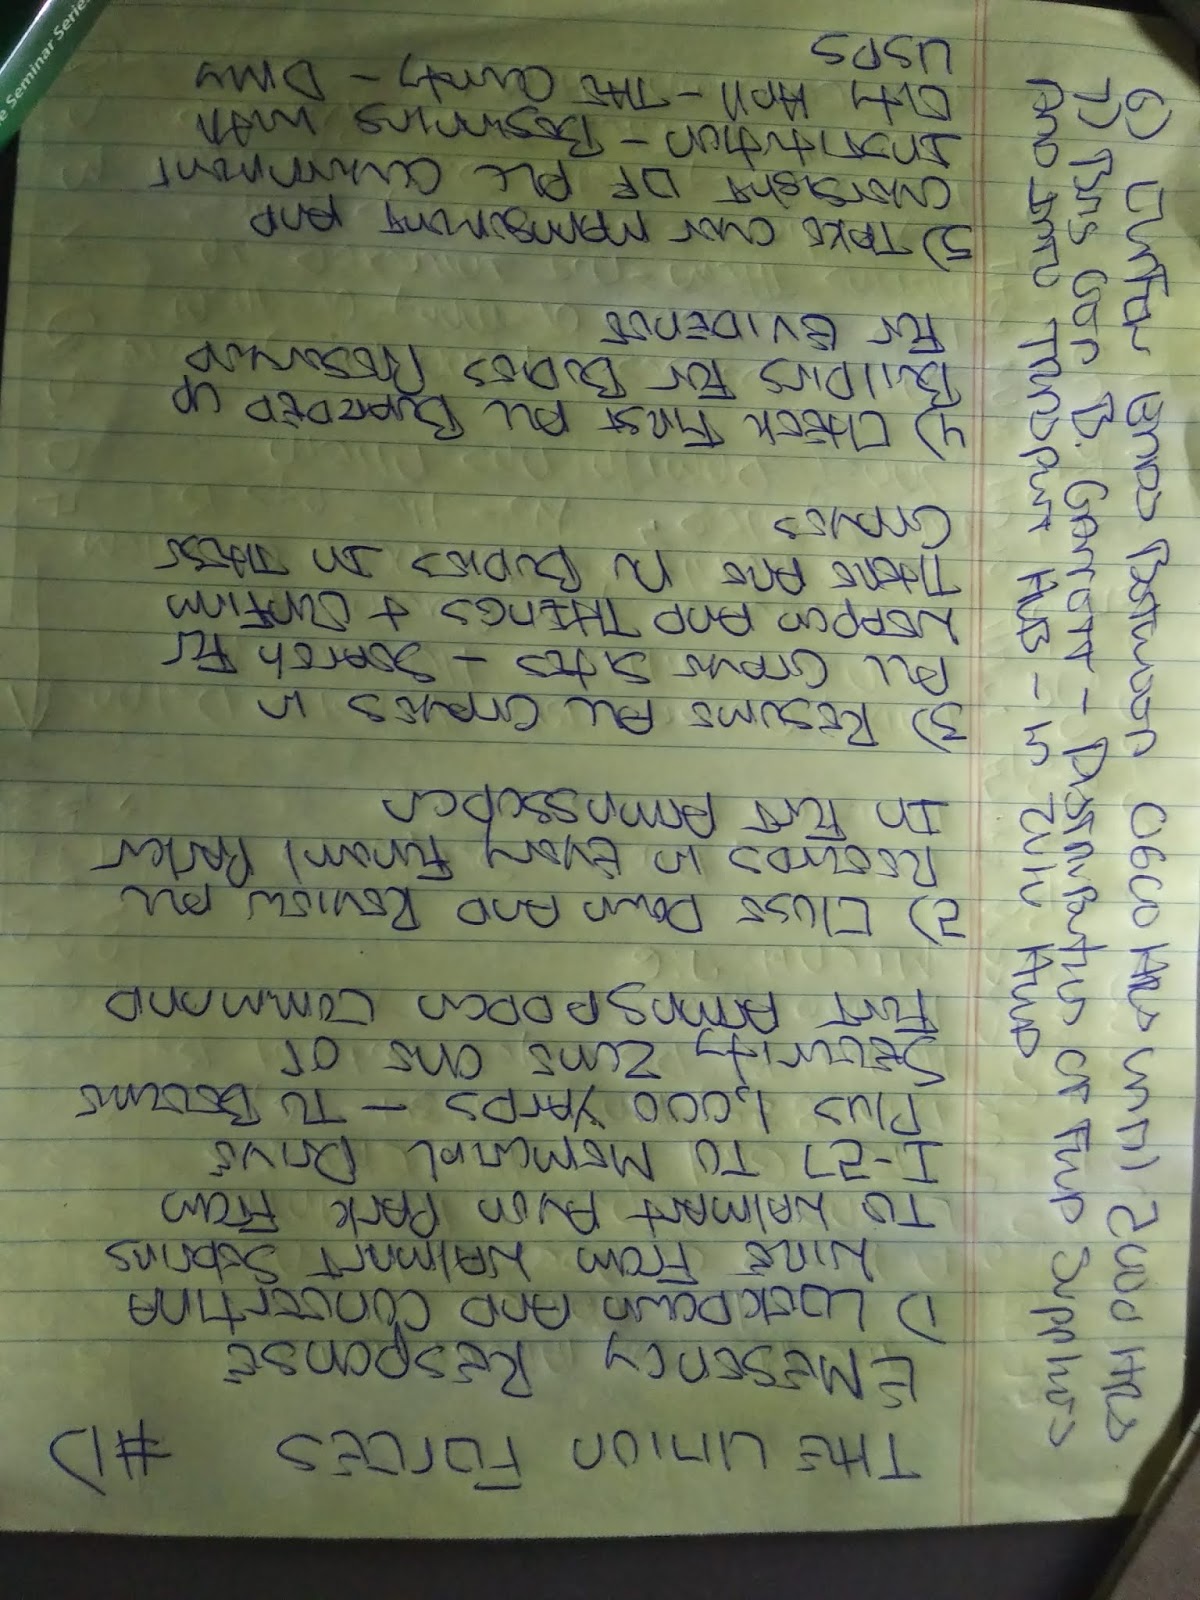 THE UNION FORCES #1)
EMESENCY RESPONSE
1) LOCKDOWN AND CONCERTINA
WIRE FROM WALMART SEBRING
TO WALMART AVON PARK FROM
I-27 TO MEMORIAL DRIVE
PLUS 1,000 YARDS - TO BECOME
SECURITY ZONE ONE OF
FORT COMMAND
2) CLOSE DOWN AND REVIEW ALL
RECORDS IN EVERY FUNERAL PARLOR
IN FORT
3) RESUME ALL GRAVES IN
ALL GRAVE SITES - SEARCH FOR
WEAPON AND THINGS + CONFIRM
THERE ARE BODIES IN THESE
GRAVES
4) CHECK FIRST ALL BOARDED UP
BUILDING FOR BODIES RESERVED
FOR EVIDENCE
5) TAKE OVER MANAGEMENT AND
OVERSIGHT OF ALL GOVERNMENT
INSTITUTION - BEGINNING WITH
CITY HALL - THE COUNTY - DMV
USPS
6) CURFEW BETWEEN 0600 HRS UNTIL HRS
7) B. - DISTRIBUTION OF FOOD SUPPLIES
AND TRANSPORT HUB -